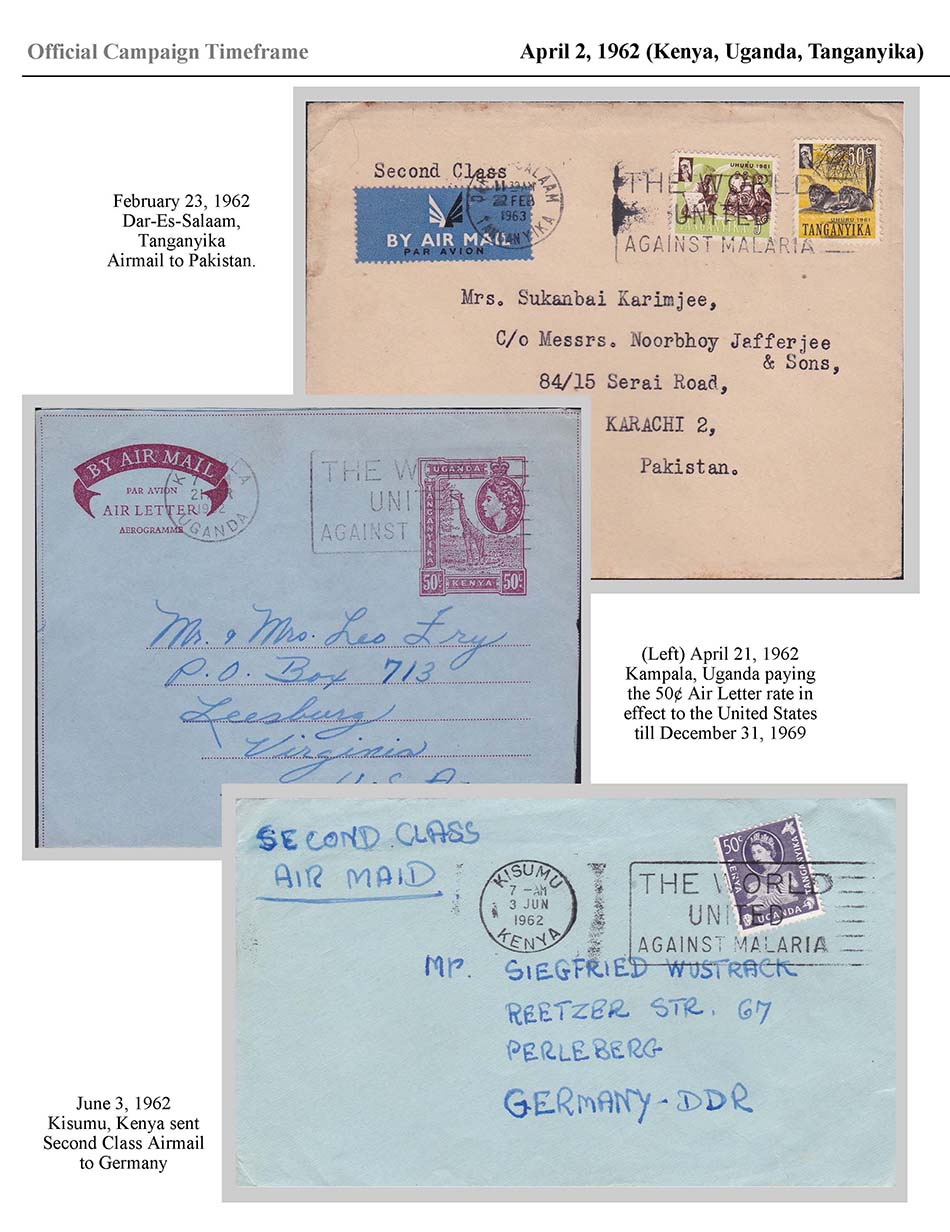 Official Campaign Timeframe
April 2, 1962 (Kenya, Uganda, Tanganyika)
February 23, 1962
Dar-Es-Salaam,
Tanganyika
Airmail to Pakistan.
Second Class
BY AIR MAIL
PAR AVION
SALAAM
FEB
1963
TANGANYIKA
THE WORLD
UNITED
AGAINST MALARIA
UHURU 1961
TANGANYIKA
50c
UHURU 1961
TANGANYIKA
Mrs. Sukanbai Karimjee,
C/o Messrs. Noorbhoy Jafferjee
& Sons,
84/15 Serai Road,
KARACHI 2,
Pakistan.
BY AIR MAIL
PAR AVION
AIR LETTER
AEROGRAMME
UGANDA
THE W
UNIT
AGAINST
UGANDA
TANGANYIKA
50c KENYA 50c
Mr. & Mrs. Leo Fry
P.O. Box 713
Leesburg
Virginia
U.S.A.
(Left) April 21, 1962
Kampala, Uganda paying
the 50¢ Air Letter rate in
effect to the United States
till December 31, 1969
SECOND CLASS
AIR MAID
KISUMU
7 - AM
3 JUN
1962
KENYA
THE WORLD
UNITED
AGAINST MALARIA
50c
KENYA
TANGANYIKA
UGANDA
Mr. SIEGFRIED WUSTRACK
REETZER STR. 67
PERLEBERG
GERMANY-DDR
June 3, 1962
Kisumu, Kenya sent
Second Class Airmail
to Germany